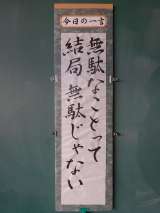 今日の一言
無駄なことって
結局無駄じゃない